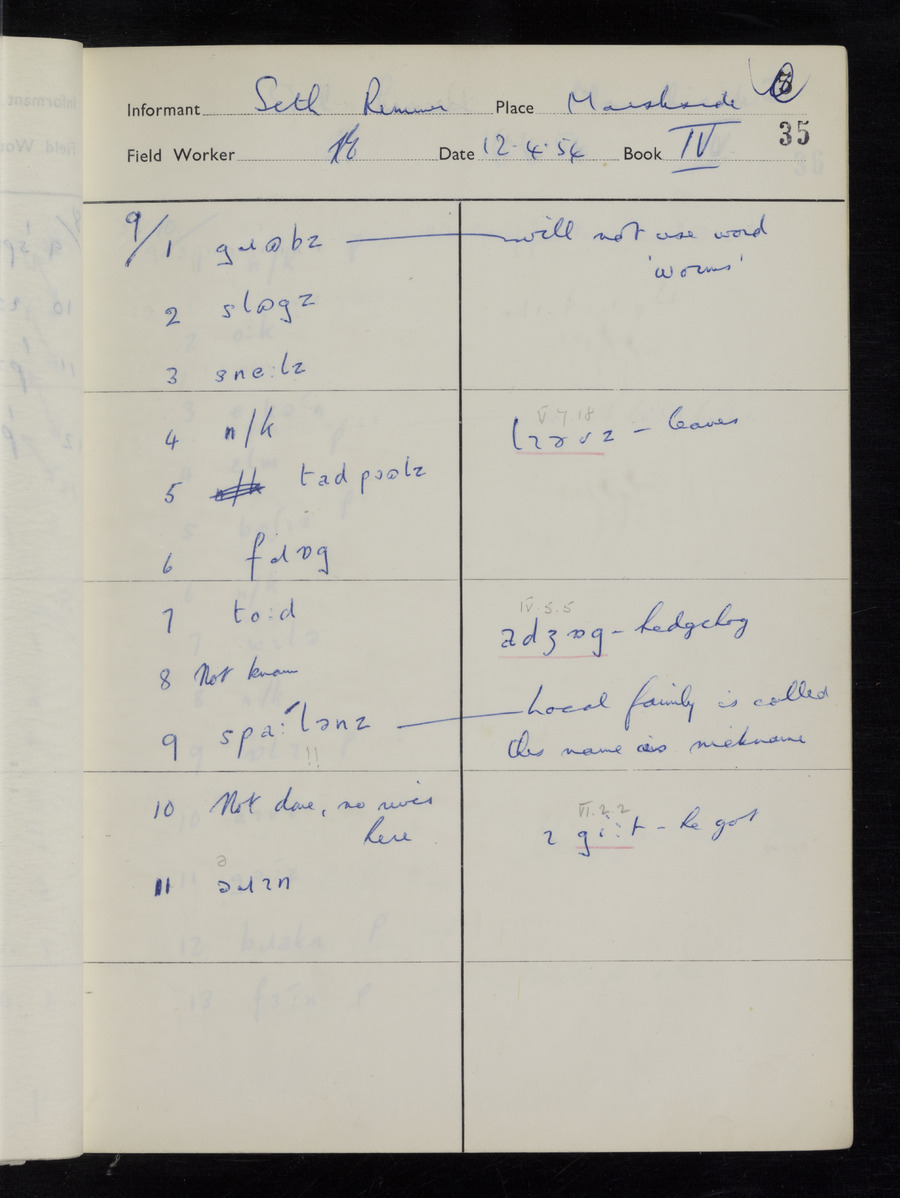 Informant Seth Rimmer Place Marshside 8
Field Worker Date 12.4.54 Book IV 35
9/1 gɹɷbz — will not use word
'worms'
2 slɷgz
3 sne:lz
4 n/k
V.7.18
lɪəvz — leaves
5 tadpɔɷlz
6 fɹɒg
7 to:d
IV.5.5
ɪdʒɒg - hedgehog
8 Not known
9 spa:lənz — Local family is called
!!
this name as nickname
10 Not done, no rivers
here
VI.2.2
ɪ gi:t - he got
ə
11 əɹɪn